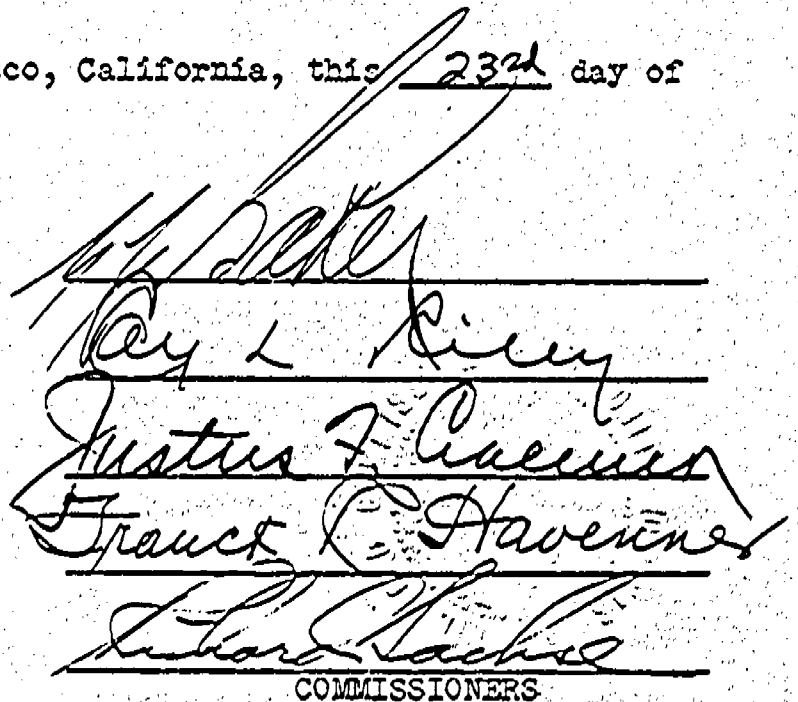 co, California, this 23rd day of
Baker
Ray L Riley
Justus F. Craemer
Franck R Havenner
Richard Sachse
COMMISSIONERS